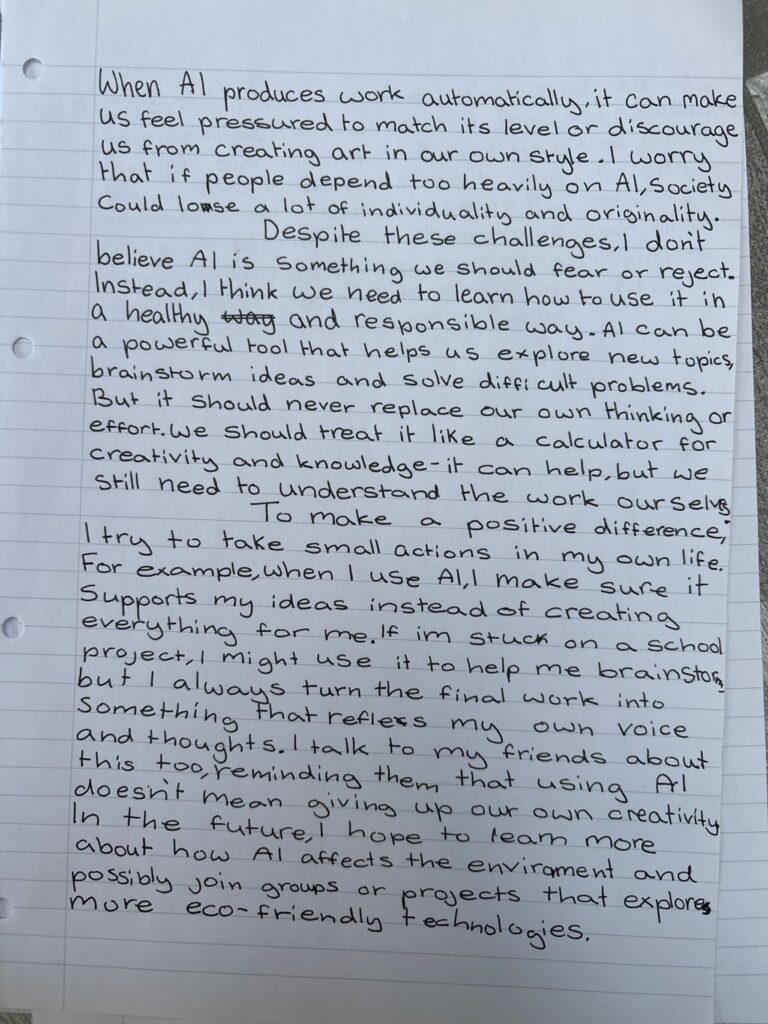 When AI produces work automatically, it can make
us feel pressured to match its level or discourage
us from creating art in our own style. I worry
that if people depend too heavily on AI, Society
Could lose a lot of individuality and originality.
Despite these challenges, I don't
believe AI is something we should fear or reject.
Instead, I think we need to learn how to use it in
a healthy way and responsible way. AI can be
a powerful tool that helps us explore new topics,
brainstorm ideas and solve difficult problems.
But it should never replace our own thinking or
effort. We should treat it like a calculator for
creativity and knowledge-it can help, but we
still need to understand the work ourselvs
To make a positive difference,
I try to take small actions in my own life.
For example, when I use AI, I make sure it
Supports my ideas instead of creating
everything for me. If im stuck on a school
project, I might use it to help me brainstorm,
but I always turn the final work into
something that refleks my own voice
and thoughts. I talk to my friends about
this too, reminding them that using AI
doesn't mean giving up our own creativity
In the future, I hope to learn more
about how AI affects the enviroment and
possibly join groups or projects that explores
more eco-friendly technologies.